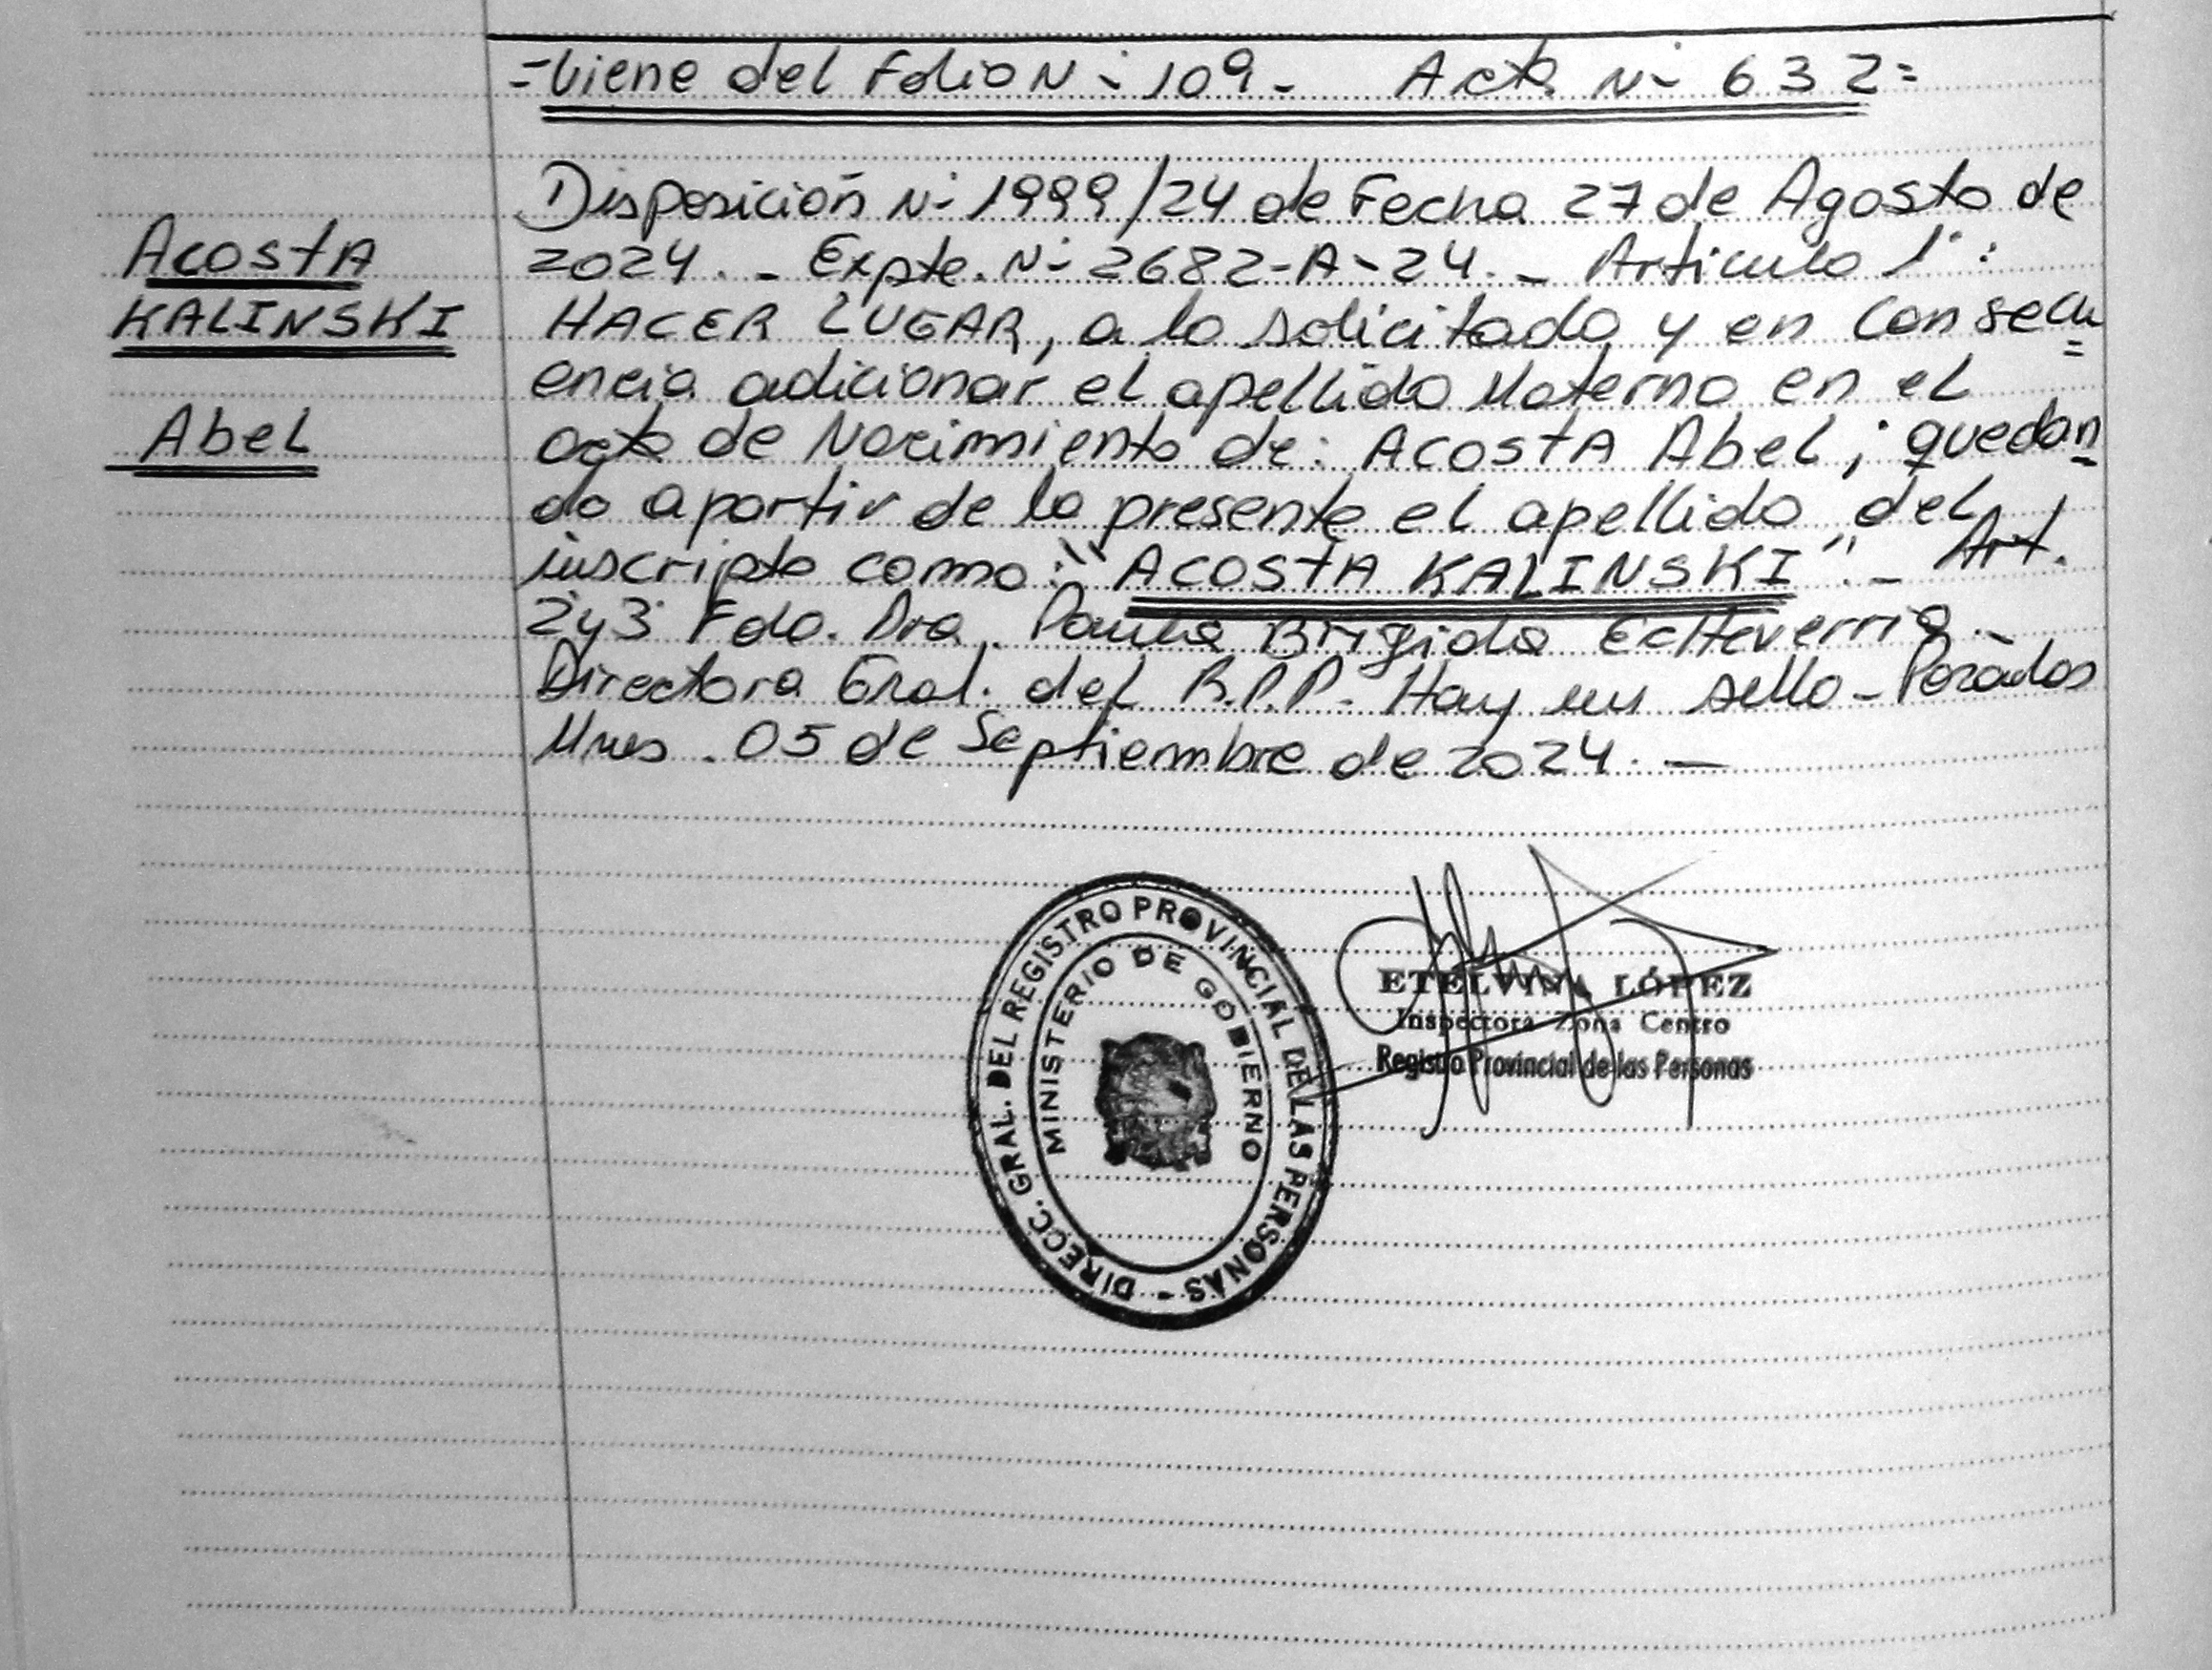 =Viene del Folio N- 109- Acta N- 632=
Acosta
KALINSKI
Abel
Disposición N- 1999/24 de Fecha 27 de Agosto de
2024. - Expte. N- 2682-A-24. - Articulo 1°:
HACER LUGAR, a lo solicitado y en Consecu
encia adicionar el apellido Materno en el
acta de Nacimiento de: ACOSTA Abel; quedan
do a partir de la presente el apellido del
inscripto como: "ACOSTA KALINSKI". - Art.
2y3 Fdo. Dra. Paula Brigida Echeverria.-
Directora Gral. del R.P.P. Hay un sello - Posadas
Mnes. 05 de Septiembre de 2024. —
DIRECC. GRAL. DEL REGISTRO PROVINCIAL DE LAS PERSONAS -
MINISTERIO DE GOBIERNO
ETELVINA LÓPEZ
Inspectora Zona Centro
Registro Provincial de las Personas